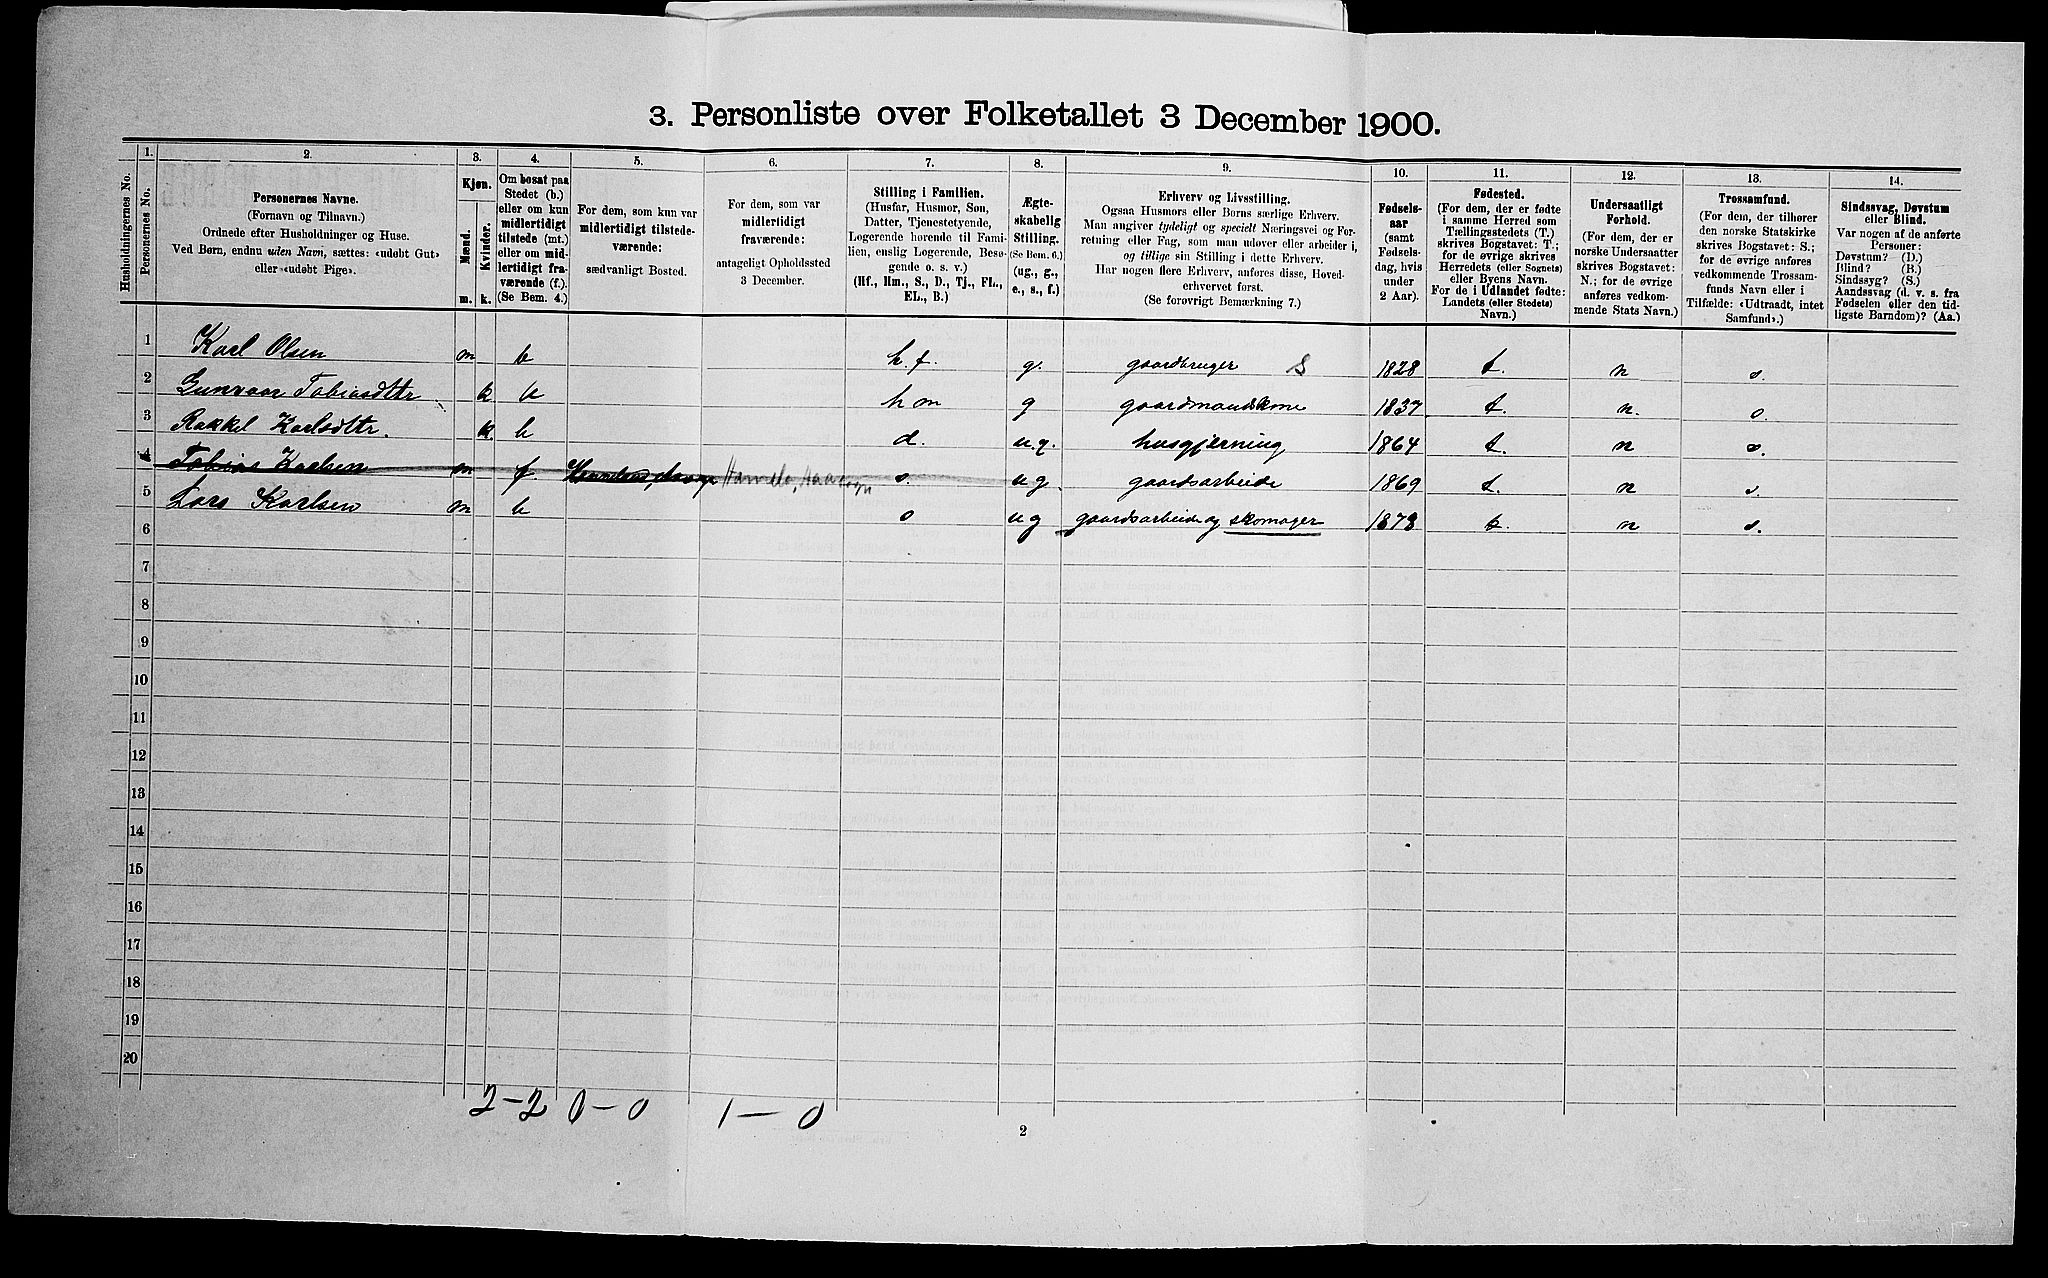 3. Personliste over Folketallet 3 December 1900.
1. 2. 3. 4. 5. 6. 7. 8. 9. 10. 11. 12. 13. 14.
Husholdningernes No.
Personernes No.
Personernes Navne.
(Fornavn og Tilnavn.)
Ordnede efter Husholdninger og Huse.
Ved Børn, endnu uden Navn, sættes: «udøbt Gut»
eller «udøbt Pige».
Kjøn.
Mænd.
Kvinder.
m. k.
Om bosat paa
Stedet (b.)
eller om kun
midlertidigt
tilstede (mt.)
eller om mid-
lertidigt fra-
værende (f.)
(Se Bem. 4.)
For dem, som kun var
midlertidigt tilstede-
værende:
sædvanligt Bosted.
For dem, som var
midlertidigt
fraværende:
antageligt Opholdssted
3 December.
Stilling i Familien.
(Husfar, Husmor, Søn,
Datter, Tjenestetyende,
Logerende hørende til Fami-
lien, enslig Logerende, Besø-
gende o. s. v.)
(Hf., Hm., S., D., Tj., FL.,
EL., B.)
Ægte-
skabelig
Stilling.
(Se Bem. 6.)
(ug., g.,
e., s., f.)
Erhverv og Livsstilling.
Ogsaa Husmors eller Børns særlige Erhverv.
Man angiver tydeligt og specielt Næringsvei og For-
retning eller Fag, som man udøver eller arbeider i,
og tillige sin Stilling i dette Erhverv.
Har nogen flere Erhverv, anføres disse, Hoved-
erhvervet først.
(Se forøvrigt Bemærkning 7.)
Fødsels-
aar
(samt
Fødsels-
dag, hvis
under
2 Aar).
Fødested.
(For dem, der er fødte
i samme Herred som
Tællingsstedets (T.)
skrives Bogstavet: T.;
for de øvrige skrives
Herredets (eller Sognets)
eller Byens Navn.
For de i Udlandet fødte:
Landets (eller Stedets)
Navn.)
Undersaatligt
Forhold.
(For dem, der er
norske Undersaatter
skrives Bogstavet:
N.; for de øvrige
anføres vedkom-
mende Stats Navn.)
Trossamfund.
(For dem, der tilhører
den norske Statskirke
skrives Bogstavet: S.;
for de øvrige anføres
vedkommende Trossam-
funds Navn eller i
Tilfælde: «Udtraadt, intet
Samfund».)
Sindssvag, Døvstum
eller Blind.
Var nogen af de anførte
Personer:
Døvstum? (D.)
Blind? (B.)
Sindssyg? (S.)
Aandssvag (d. v. s. fra
Fødselen eller den tid-
ligste Barndom)? (Aa.)
1 Karl Olsen m b h.f. g. gaardbruger S 1828 t. n s.
2 Gunvaar Tobiasdttr k b h m g gaardmandskone 1837 t. n. s.
3 Rakkel Karlsdttr. k. b d. u.g. husgjerning 1864 t. n s.
4 Tobias Karlsen m f. s. u g gaardsarbeide 1869 t. n s
5 Lars Karlsen m b s u g gaardsarbeide og skomager 1873 t. n s.
6
7
8
9
10
11
12
13
14
15
16
17
18
19
20
2-2 0-0 1-0
2